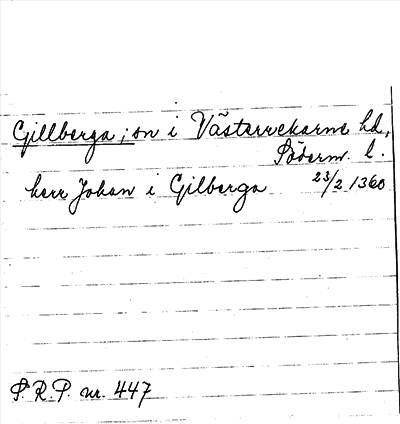 Gillberga; sn i Västerrekarne hd,
Söderm. l.
herr Johan i Gilberga 23/2 1360
S.R.P. nr. 447